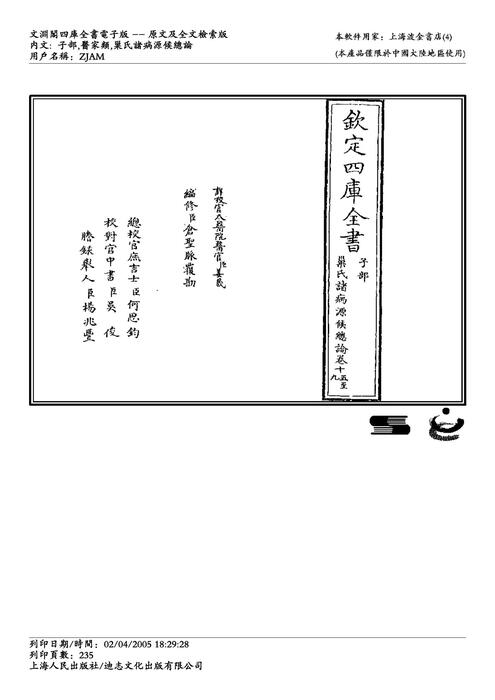 文淵閣四庫全書電子版 -- 原文及全文檢索版
內文: 子部,醫家類,巢氏諸病源候總論
用戶名稱: ZJAM
本軟件用家: 上海波金書店(4)
(本產品僅限於中國大陸地區使用)
欽定四庫全書
子部
巢氏諸病源候總論卷十五至
九
詳校官太醫院醫官臣姜晟
編修臣倉聖脈覆勘
總校官庶吉士臣何思鈞
校對官中書臣吳俊
謄錄舉人臣楊兆豐
列印日期/時間: 02/04/2005 18:29:28
列印頁數: 235
上海人民出版社/迪志文化出版有限公司